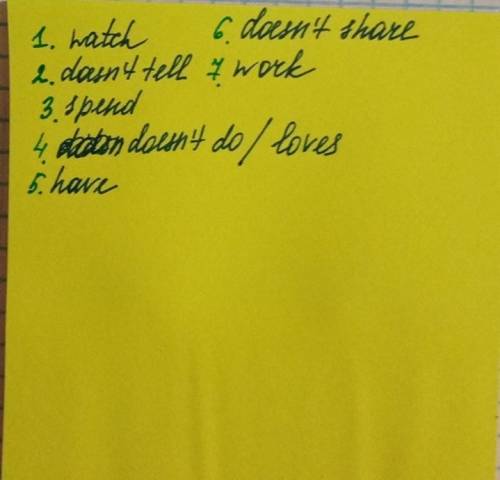 1. watch
2. doesn't tell
3. spend
4. doesn't do / loves
5. have
6. doesn't share
7. work